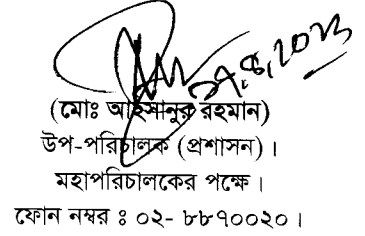 ২৭.৪.২০২৩
(মোঃ আহসানুর রহমান)
উপ-পরিচালক (প্রশাসন) ।
মহাপরিচালকের পক্ষে ।
ফোন নম্বর ঃ ০২- ৮৮৭০০২০ ।